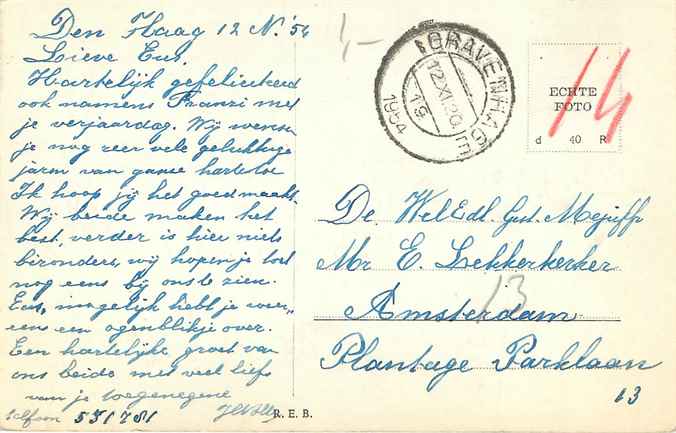 Den Haag 12 N. '54
Lieve Eus.
Hartelijk gefeliciteerd
ook namens Franzi met
je verjaardag. Wij wensen
je nog zeer vele gelukkige
jaren van ganse harte toe
Ik hoop jij het goed maakt.
Wij beide maken het
best, verder is hier niets
bizonders, wij hopen je toch
nog eens bij ons te zien.
Eus, mogelijk hebt je weer
eens een ogenblikje over.
Een hartelijke groet van
ons beide met veel liefs
van je toegenegene
telfoon 531781
R. E. B.
1,-
'S GRAVENHAGE
12.XI.20
19
1954
ECHTE
FOTO
d 40 R
14
De WelEdl. Gest. Mejuffr
Mr E. Lekkerkerker
13
Amsterdam
Plantage Parklaan
13